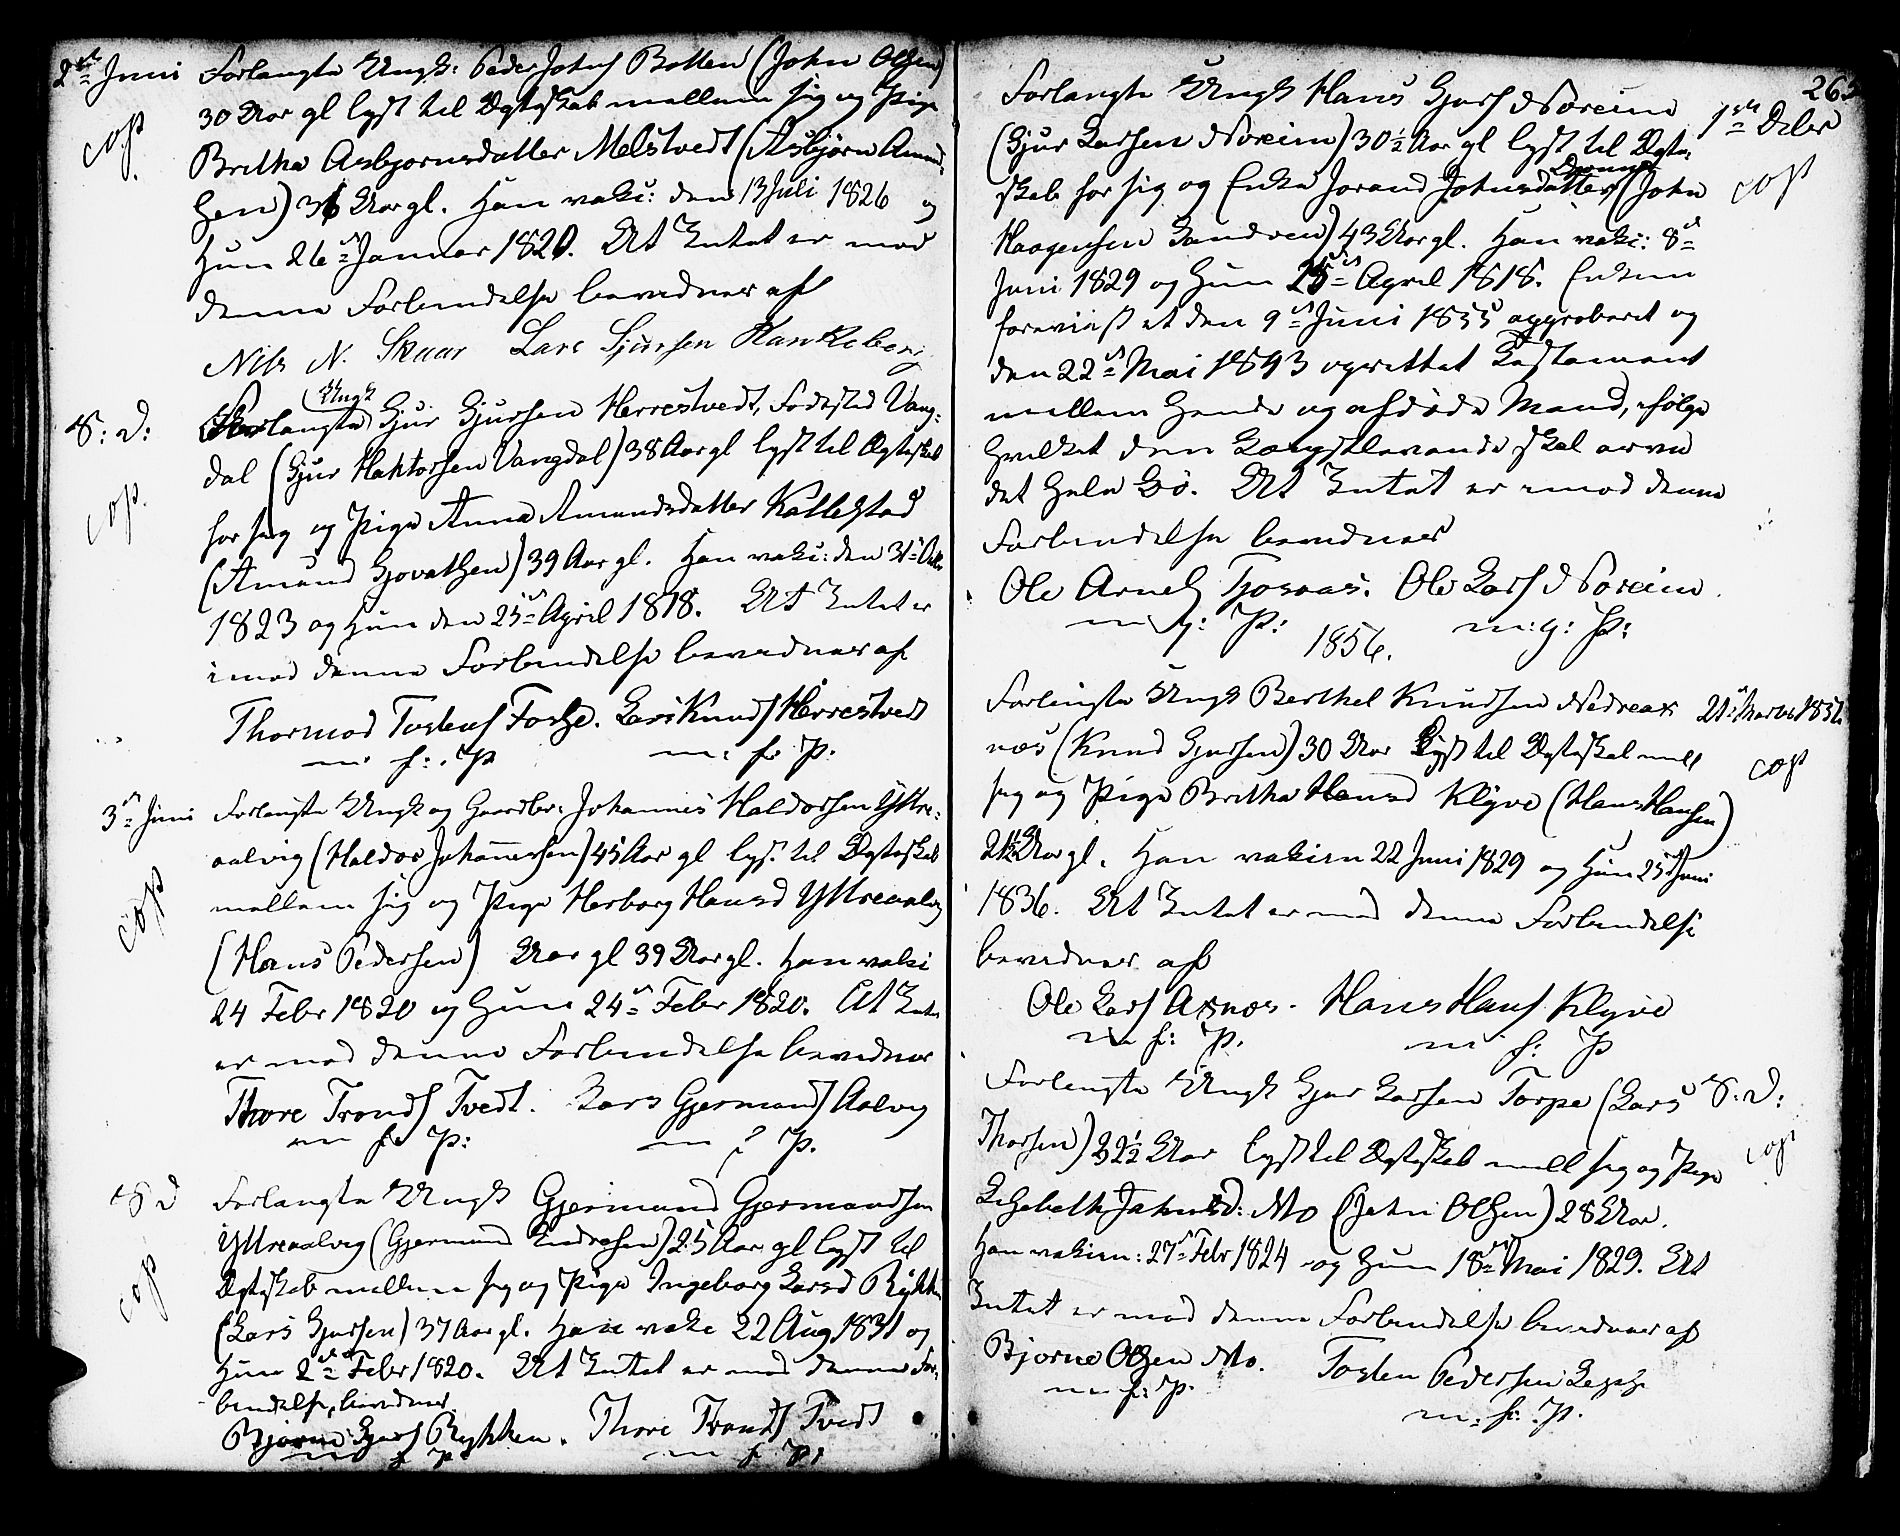 2den Juni Forlangte Ungk: Peder Johns Botten (John Olsen)
30 Aar gl lyst til Ægteskab mellem sig og Pige
cop.
Britha Asbjørnsdatter Melstvedt (Asbjørn Amund-
sen) 36 Aar gl. Han vakc: den 13 Juli 1826 og
Hun 26de Januar 1820. At Intet er mod
denne Forbindelse bevidner af
Nils N. Skaar Lars Sjursen Flankeberg
S: D: Forlangte Ungk Gjur Gjursen Herrestvedt, Fødested Vang-
dal (Gjur Haktorsen Vangdal) 38 Aar gl lyst til Ægteskab
cop.
for sig og Pige Anna Amundsdatter Kallestad
(Amund Gjovathsen) 39 Aar gl. Han vakc: den 31te
1823 og Hun den 25de April 1818. At Intet er
imod denne Forbindelse bevidner af
Thormod Tostens Fosse. Lars Knuds Herrestvedt
m: f: P m: f: P:
3de Juni Forlangte Ungk og Gaardbr: Johannes Haldorsen Yttre-
aalvig (Haldor Johannessen) 45 Aar gl lyst til Ægteskab
cop
mellem sig og Pige Herborg Hansd Yttreaalvig
(Hans Pedersen) Aar gl 39 Aar gl. Han vakc
24 Febr 1820 og Hun 24de Febr 1820. At Intet
er mod denne Forbindelse bevidner
Thore Tronds Tvedt. Lars Gjermunds Aalvig
m f: P: m f P.
S D Forlangte Ungk Gjermund Gjermundsen
Yttreaalvig (Gjermund Endresen) 25 Aar gl lyst til
cop
Ægteskab mellem sig og Pige Ingeborg Larsd Rykken
(Lars Gjursen) 37 Aar gl. Han vakc 22 Aug 1831 og
Hun 2den Febr 1820. At Intet er mod denne For-
bindelse, bevidner
Bjørn Gjurs Rykken. Thore Tronds Tvedt
m f P m f P:
Forlangte Ungk Hans Gjurs Noreim 1ste Octbr
(Gjur Larsen Noreim) 30½ Aar gl lyst til Ægte-
skab for sig og Enke Jorand Johnsdatter (John
cop
Haagensen Sandven) 43 Aar gl. Han vakc: 8de
Juni 1829 og Hun 25de April 1818. Enken
foreviist et den 9de Juni 1855 approberet og
den 22de Mai 1843 oprettet Testament
mellem hende og afdøde Mand, ifølge
hvilket den Længstlevende skal arve
det hele Bo. At Intet er imod denne
Forbindelse bevidner
Ole Arnes Tjosaas. Ole Lars Noreim
m: g: P: m: g: P:
1856.
Forlangte Ungk Berthel Knudsen Nedreax- 21de Marts 1856
næs (Knud Gjursen) 30 Aar lyst til Ægteskab mell
cop
sig og Pige Britha Hansd Klyve (Hans Hansen)
Aar gl. Han vakcin 22 Juni 1829 og Hun 25de Juni
1836. At Intet er mod denne Forbindelse
bevidner af
Ole Lars Axnæs. Hans Hans Klyve
m f: P. m f: P
Forlangte Ungk Gjur Larsen Torpe (Lars S: D:
Thorsen) 32½ Aar lyst til Ægteskab mell sig og Pige
cop
Lisabeth Johnsd: Mo (John Olsen) 28 Aar.
Han vakcin: 27de Febr 1824 og Hun 18de Mai 1829. At
Intet er mod denne Forbindelse bevidner af
Bjørne Olsen Mo. Tosten Pedersen
m f: P. m: f: P.